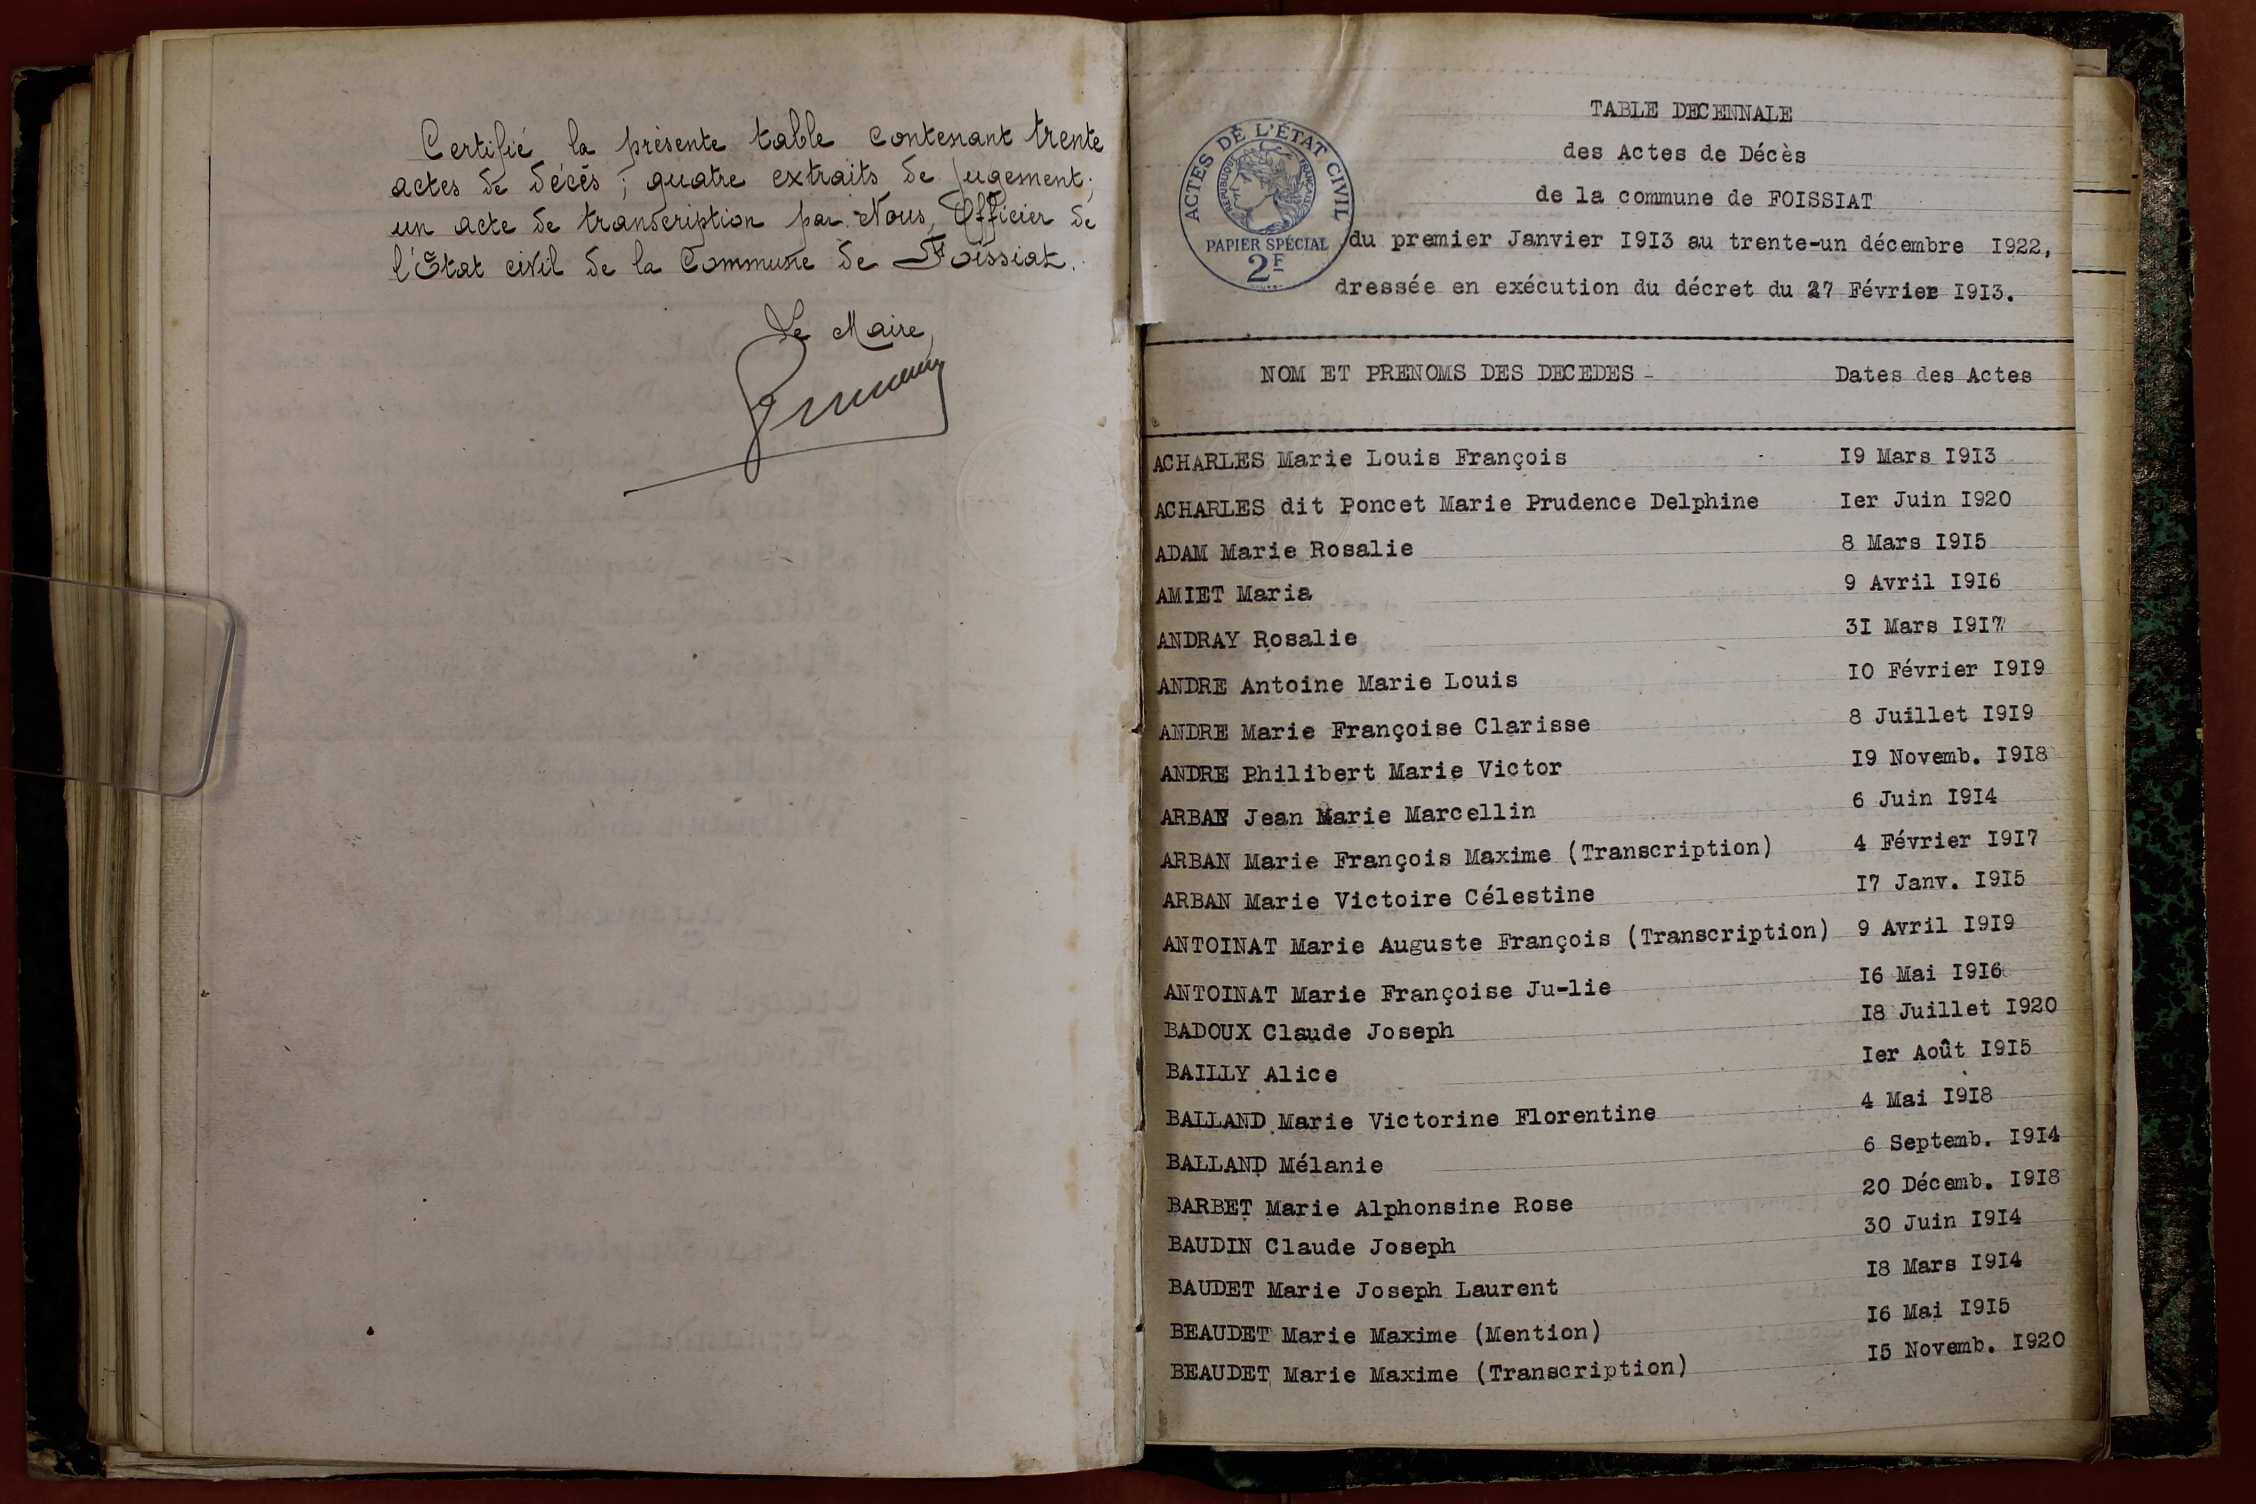 Certifié la présente table contenant trente
actes de décès ; quatre extraits de jugement ;
un acte de transcription par Nous, Officier de
l'Etat civil de la Commune de Foissiat.
Le Maire,
ACTES DE L'ÉTAT CIVIL
RÉPUBLIQUE FRANÇAISE
PAPIER SPÉCIAL
2F
TABLE DECENNALE
des Actes de Décès
de la commune de FOISSIAT
du premier Janvier I9I3 au trente-un décembre I922,
dressée en exécution du décret du 27 Février I9I3.
NOM ET PRENOMS DES DECEDES - Dates des Actes
ACHARLES Marie Louis François I9 Mars I9I3
ACHARLES dit Poncet Marie Prudence Delphine Ier Juin I920
ADAM Marie Rosalie 8 Mars I9I5
AMIET Maria 9 Avril I9I6
ANDRAY Rosalie 3I Mars I9I7
ANDRE Antoine Marie Louis IO Février I9I9
ANDRE Marie Françoise Clarisse 8 Juillet I9I9
ANDRE Philibert Marie Victor I9 Novemb. I9I8
ARBAN Jean Marie Marcellin 6 Juin I9I4
ARBAN Marie François Maxime (Transcription) 4 Février I9I7
ARBAN Marie Victoire Célestine I7 Janv. I9I5
ANTOINAT Marie Auguste François (Transcription) 9 Avril I9I9
ANTOINAT Marie Françoise Ju-lie I6 Mai I9I6
BADOUX Claude Joseph I8 Juillet I920
BAILLY Alice Ier Août I9I5
BALLAND Marie Victorine Florentine 4 Mai I9I8
BALLAND Mélanie 6 Septemb. I9I4
BARBET Marie Alphonsine Rose 20 Décemb. I9I8
BAUDIN Claude Joseph 30 Juin I9I4
BAUDET Marie Joseph Laurent I8 Mars I9I4
BEAUDET Marie Maxime (Mention) I6 Mai I9I5
BEAUDET Marie Maxime (Transcription) I5 Novemb. I920